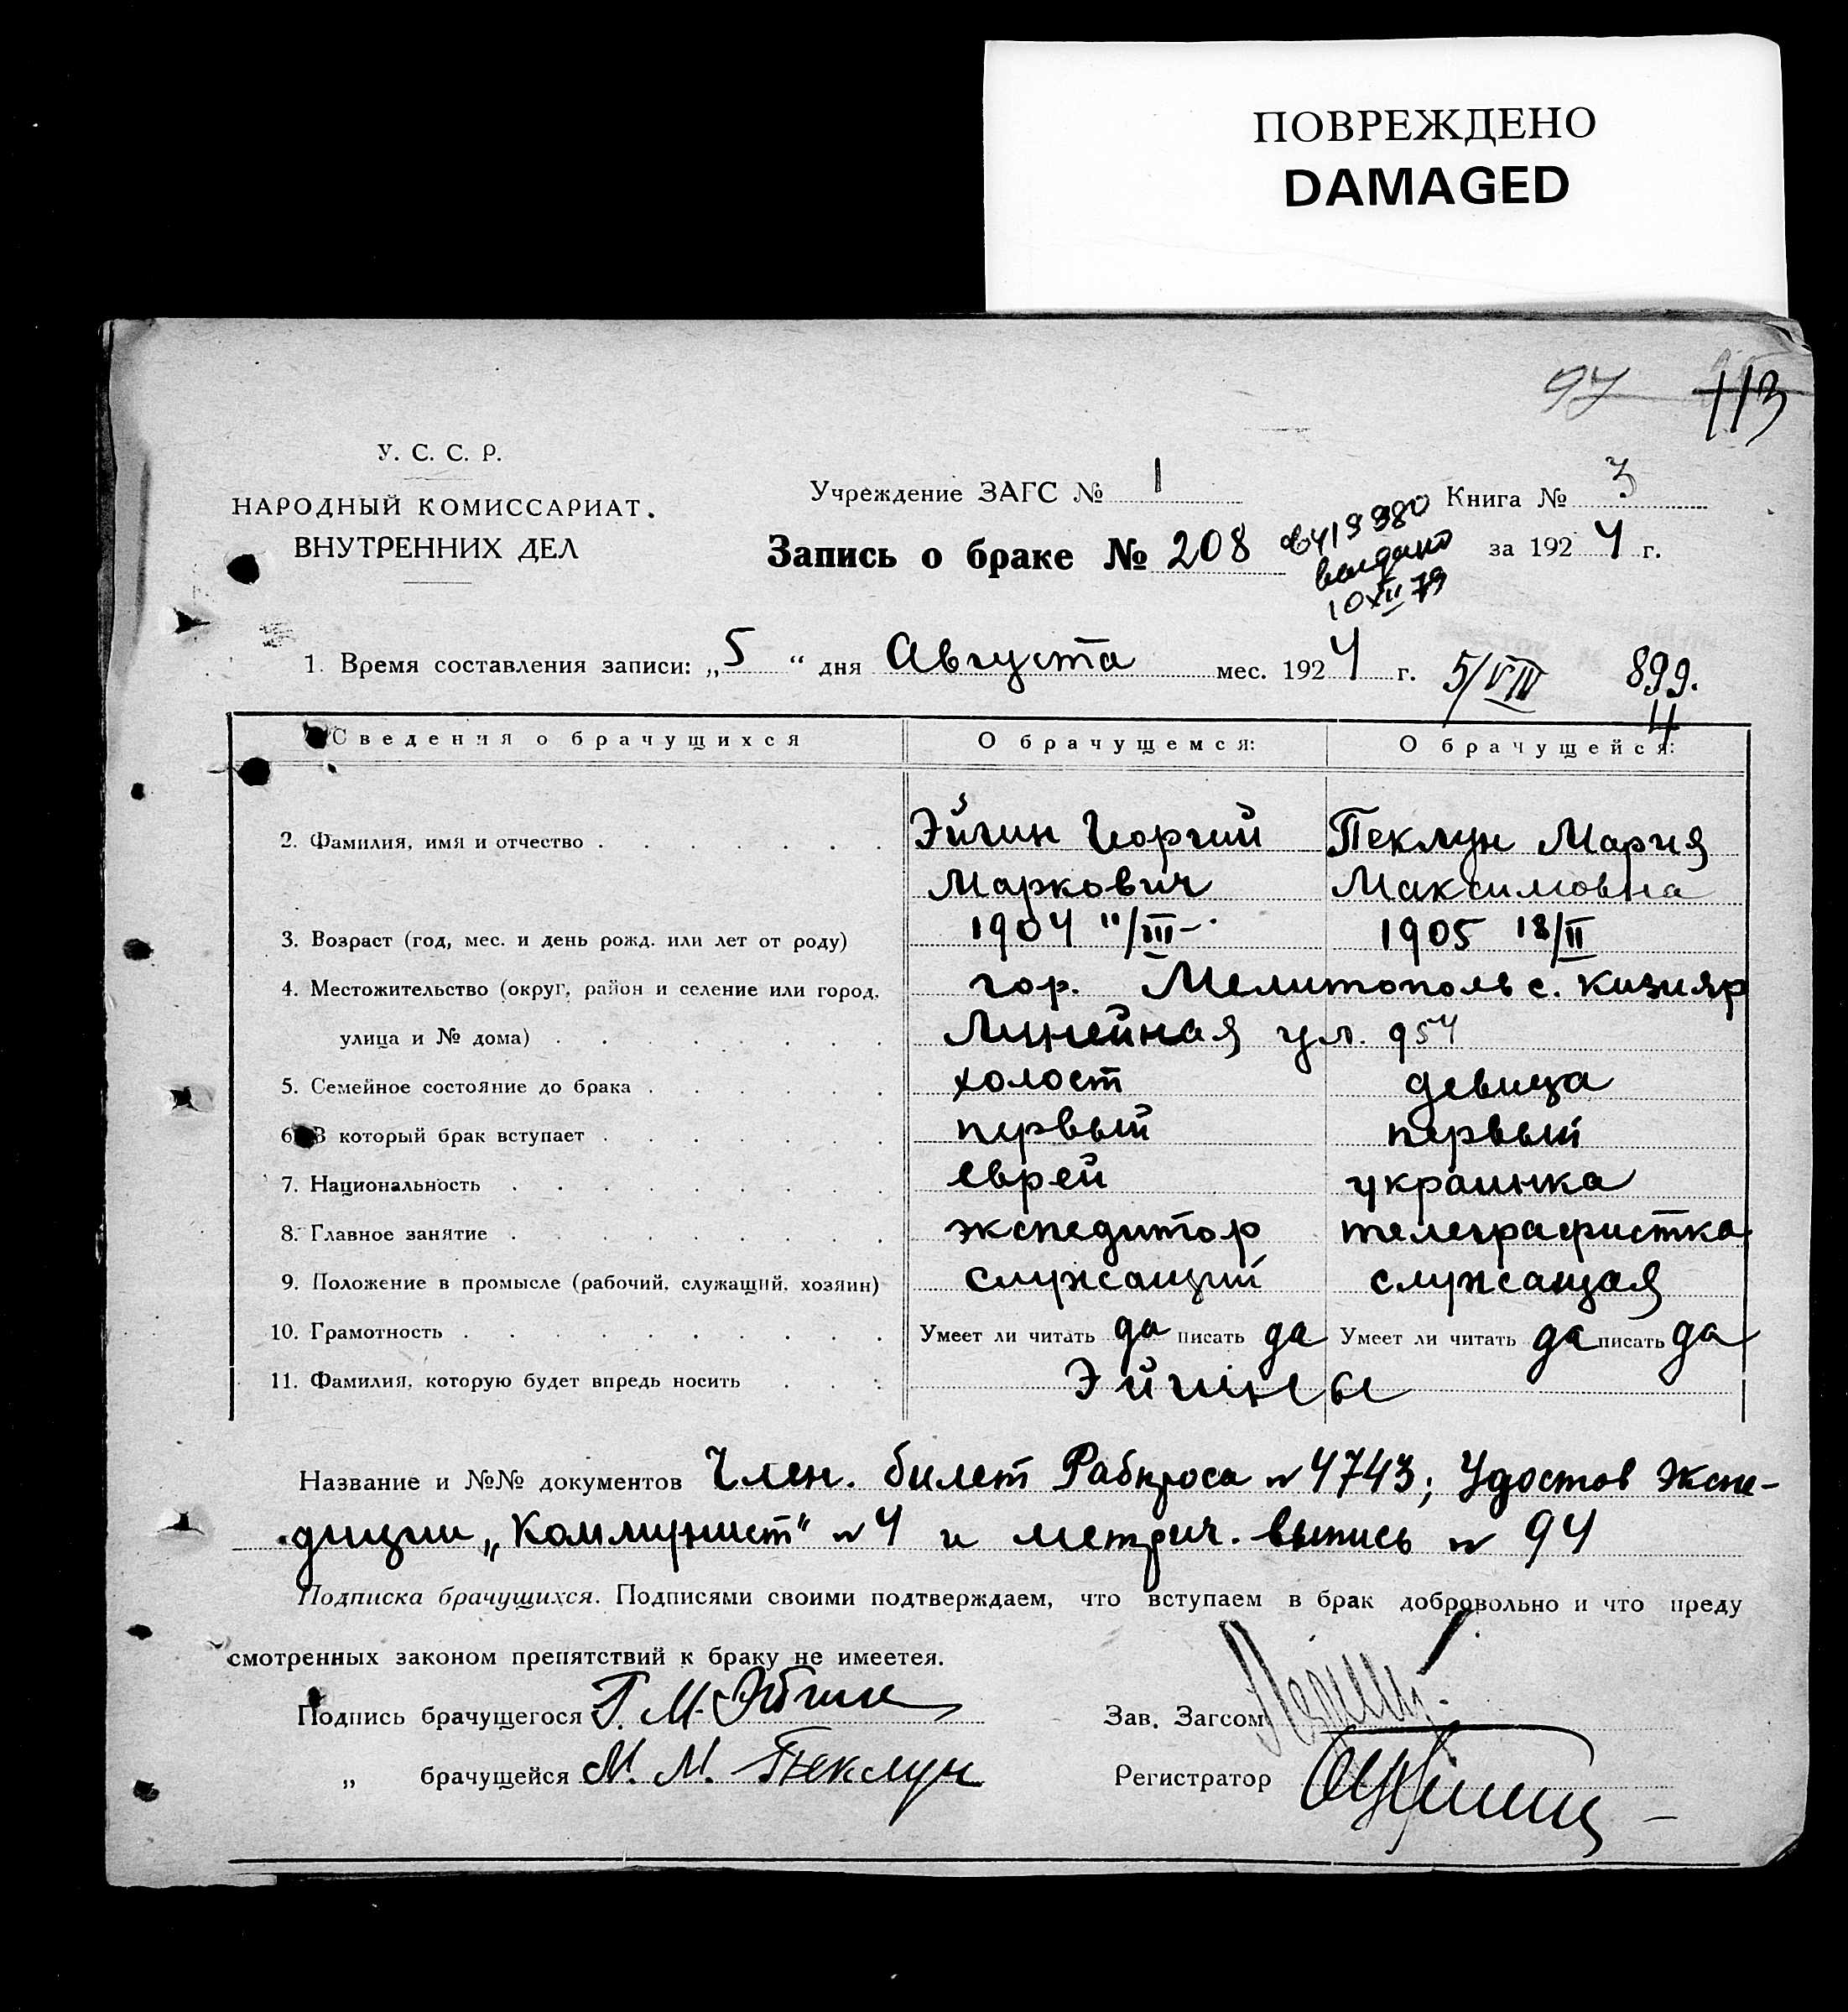 ПОВРЕЖДЕНО
DAMAGED
97 113
У. С. С. Р.
НАРОДНЫЙ КОМИССАРИАТ.
ВНУТРЕННИХ ДЕЛ
Учреждение ЗАГС № 1
Книга № 3
Запись о браке № 208
419980
выдано
10 XII 79
за 1924 г.
1. Время составления записи: „5“ дня Августа мес. 1924 г. 5/VIII 899.
4
Сведения о брачущихся О брачущемся: О брачущейся:
2. Фамилия, имя и отчество Эйгин Георгий Пеклун Мария
Маркович Максимовна
3. Возраст (год, мес. и день рожд. или лет от роду) 1904 11/III 1905 18/II
4. Местожительство (округ, район и селение или город, гор. Мелитополь с. Кизияр
улица и № дома) Линейная ул. 954
5. Семейное состояние до брака холост девица
6. В который брак вступает первый первый
7. Национальность еврей украинка
8. Главное занятие экспедитор телеграфистка
9. Положение в промысле (рабочий, служащий, хозяин) служащий служащая
10. Грамотность Умеет ли читать да писать да Умеет ли читать да писать да
11. Фамилия, которую будет впредь носить Эйгины
Название и №№ документов Член. билет Рабпроса № 4743; Удостов Экспе-
диции „Коммунист“ № 4 и метрич. выпись № 94
Подписка брачущихся. Подписями своими подтверждаем, что вступаем в брак добровольно и что преду
смотренных законом препятствий к браку не имеетея.
Подпись брачущегося Г. М. Эйгин Зав. Загсом
„ брачущейся М. М. Пеклун Регистратор